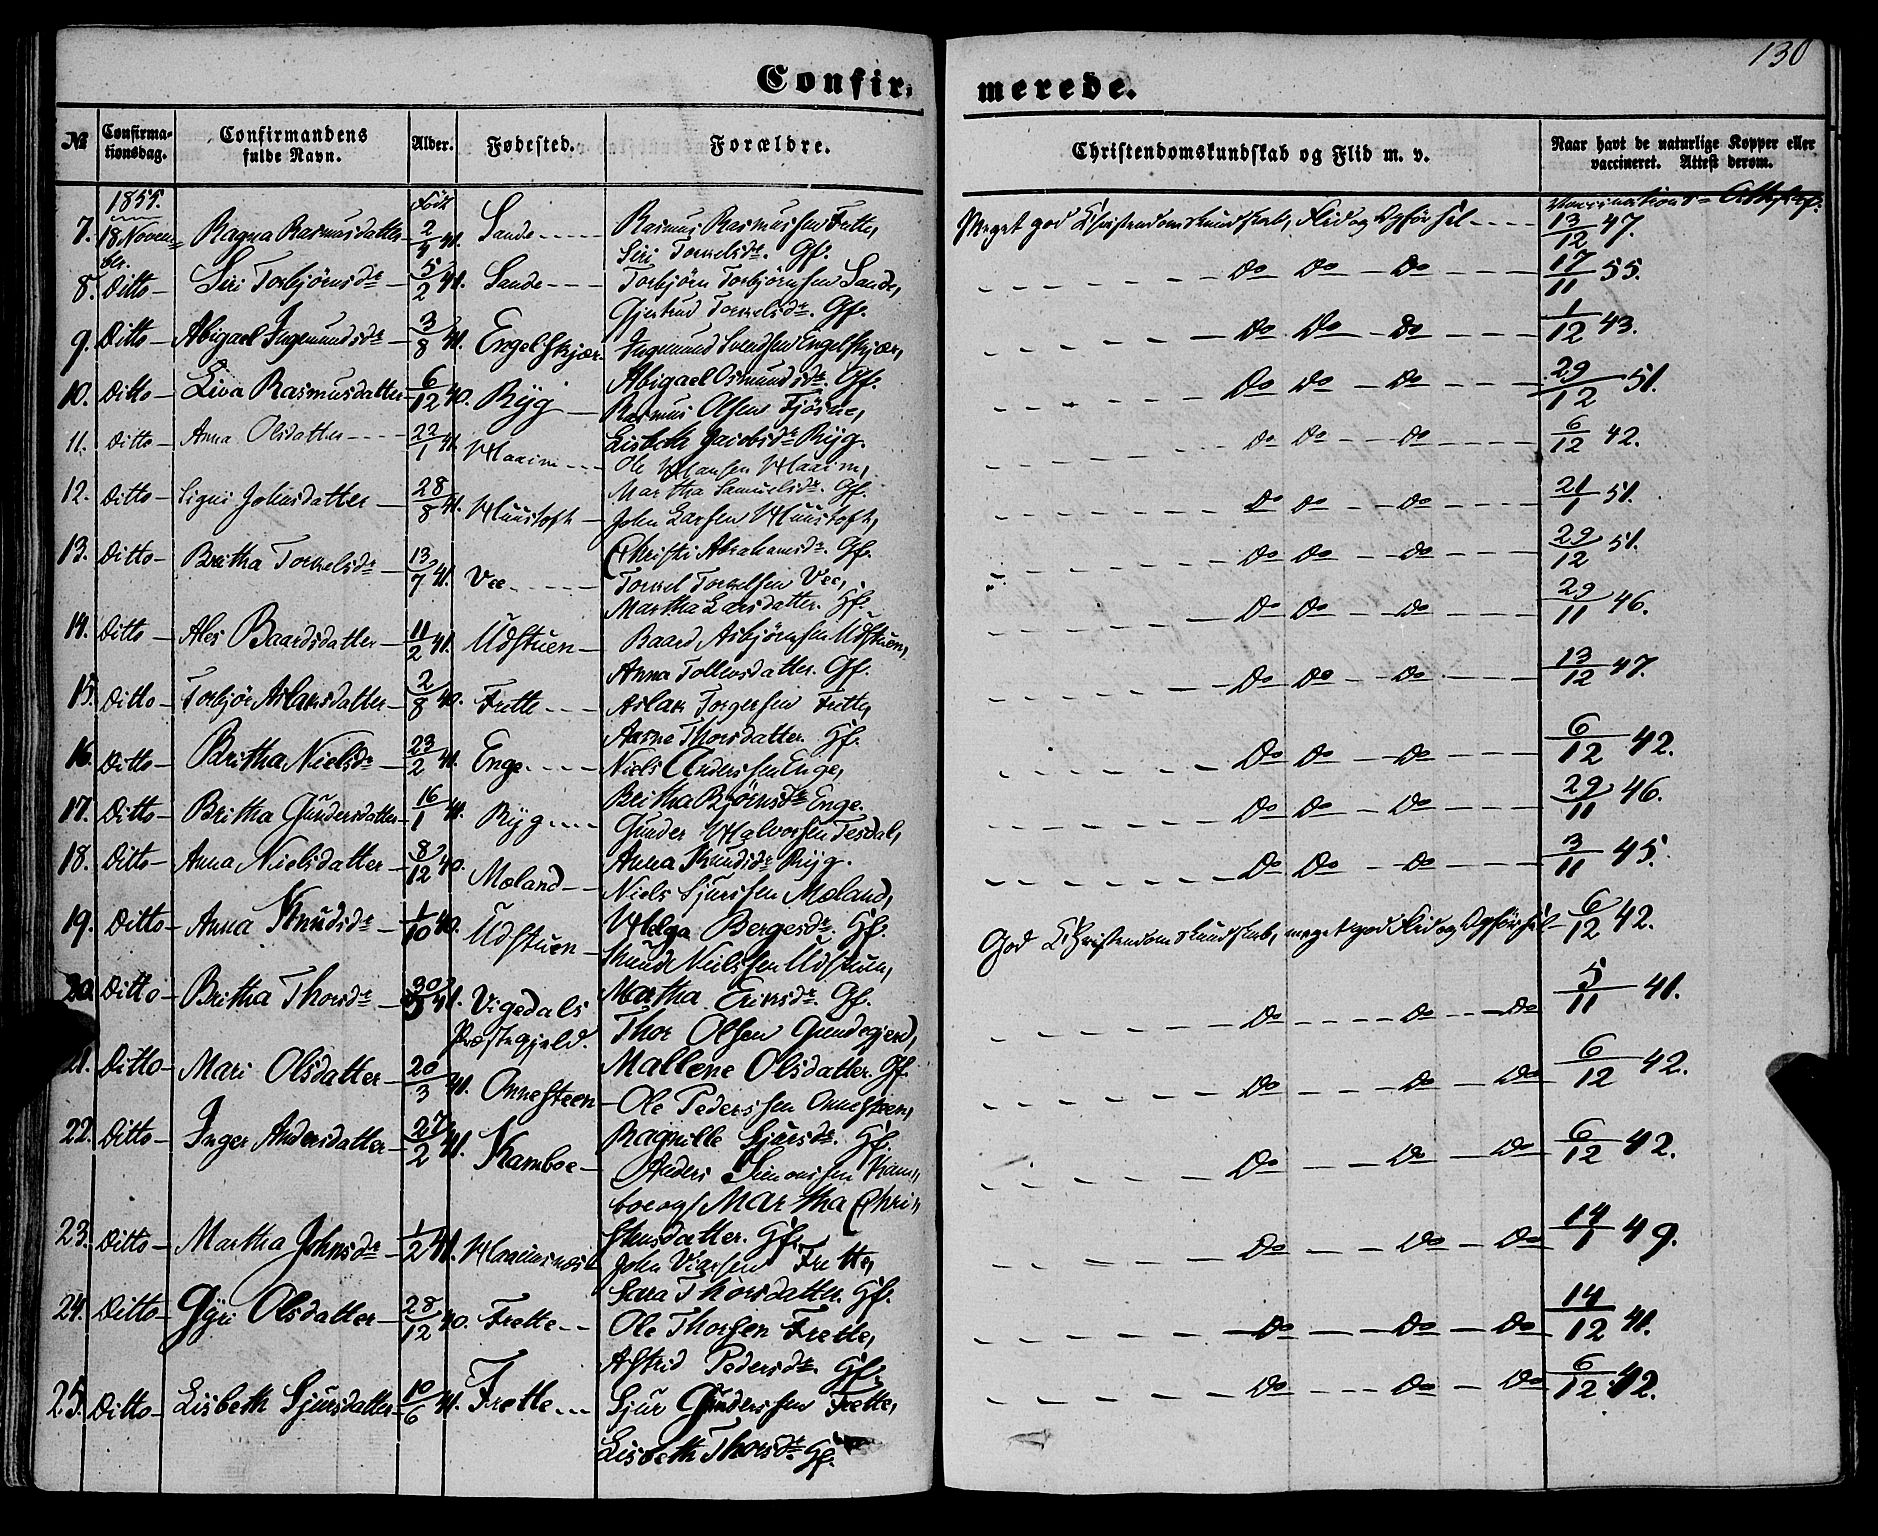 130
Confirmerede.
№ | Confirmationsdag. | Confirmandens fulde Navn. | Alder. | Fødested. | Forældre. | Christendomskundskab og Flid m. v. | Naar havt de naturlige Kopper eller vaccineret. Attest derom.
1855. | Født | Vaccinations-
7. | 18 Novenbr. | Ragna Rasmusdatter | 2/4 41. | Sande | Rasmus Rasmussen Frette, Siri Torkelsdr. Gf. | Meget god Christendomskundskab, Flid og Opførsel | 13/12 47.
8. | Ditto | Siri Torbjørnsdr | 5/2 41. | Sande | Torbjørn Torbjørnsen Sande, Gjertrud Torkelsdr. Gf. | Do Do Do | 17/11 55.
9. | Ditto | Abigael Ingemundsdr | 3/8 41. | Engelskjær | Ingemund Svendsen Engelskjær, Abigael Osmundsdr. Gf. | Do Do Do | 1/12 43.
10. | Ditto | Liva Rasmusdatter | 6/12 40. | Ryg | Rasmus Olsen Fjøsne, Lisbeth Jacobsdr Ryg. | Do Do Do | 29/12 51.
11. | Ditto | Anna Olsdatter | 22/1 41. | Haaim | Ole Hansen Haaim, Martha Samuelsdr. Gf. | Do Do Do | 6/12 42.
12. | Ditto | Signi Johnsdatter | 28/8 41. | Huustoft | John Larsen Huustoft, Christi Abrahamsdr. Gf. | Do Do Do | 21/1 51.
13. | Ditto | Britha Torkelsdr | 13/7 41. | Vee | Torkel Torkelsen Vee, Martha Larsdatter. Gf. | Do Do Do | 29/12 51.
14. | Ditto | Ales Baardsdatter | 11/2 41. | Udstuen | Baard Asbjørnsen Udstuen, Anna Tollevsdatter. Gf. | Do Do Do | 29/11 46.
15. | Ditto | Torbjør Aslaksdatter | 2/8 40. | Frette | Aslak Torgersen Frette, Aasne Thorsdatter. Gf. | Do Do Do | 13/12 47.
16. | Ditto | Britha Nielsdr | 23/2 41. | Enge | Niels Anderssen Enge, Britha Bjørnsdr Enge. | Do Do Do | 6/12 42.
17. | Ditto | Britha Gundersdatter | 16/1 41. | Ryg | Gunder Halvorsen Tesdal, Anna Knudsdr Ryg. | Do Do Do | 29/11 46.
18. | Ditto | Anna Nielsdatter | 8/12 40. | Mæland | Niels Sjurssen Mæland, Helga Bergesdr. Gf. | Do Do Do | 3/11 45.
19. | Ditto | Anna Knudsdr | 1/10 40. | Udstuen | Knud Nielssen Udstuen, Martha Eriksdr. Gf. | God Christendomskundskab, meget god Flid og Opførsel | 6/12 42.
20. | Ditto | Britha Thorsdr | 30/3 41. | Vigedals Præstegjeld. | Thor Olsen Gundegjerd, Mallene Olsdatter. Gf. | Do Do Do | 5/11 41.
21. | Ditto | Mari Olsdatter | 20/3 41. | Onnesteen | Ole Pederssen Onnesteen, Ragnille Sjursdr. Gf. | Do Do Do | 6/12 42.
22. | Ditto | Inger Andersdatter | 27/2 41. | Kamboe | Anders Simonssen Kamboe og Martha Christensdatter. Gf. | Do Do Do | 6/12 42.
23. | Ditto | Martha Johnsdr | 1/2 41. | Haaimsnæst | John Vierssen Frette, Sara Thorsdatter. Gf. | Do Do Do | 14/1 49.
24. | Ditto | Gyri Olsdatter | 28/12 40. | Frette | Ole Thorsen Frette, Astrid Pedersdr. Gf. | Do Do Do | 14/12 41.
25. | Ditto | Lisbeth Sjursdatter | 10/6 41. | Frette | Sjur Gunderssen Frette, Lisbeth Thorsdr Gf. | Do Do Do | 6/12 42.